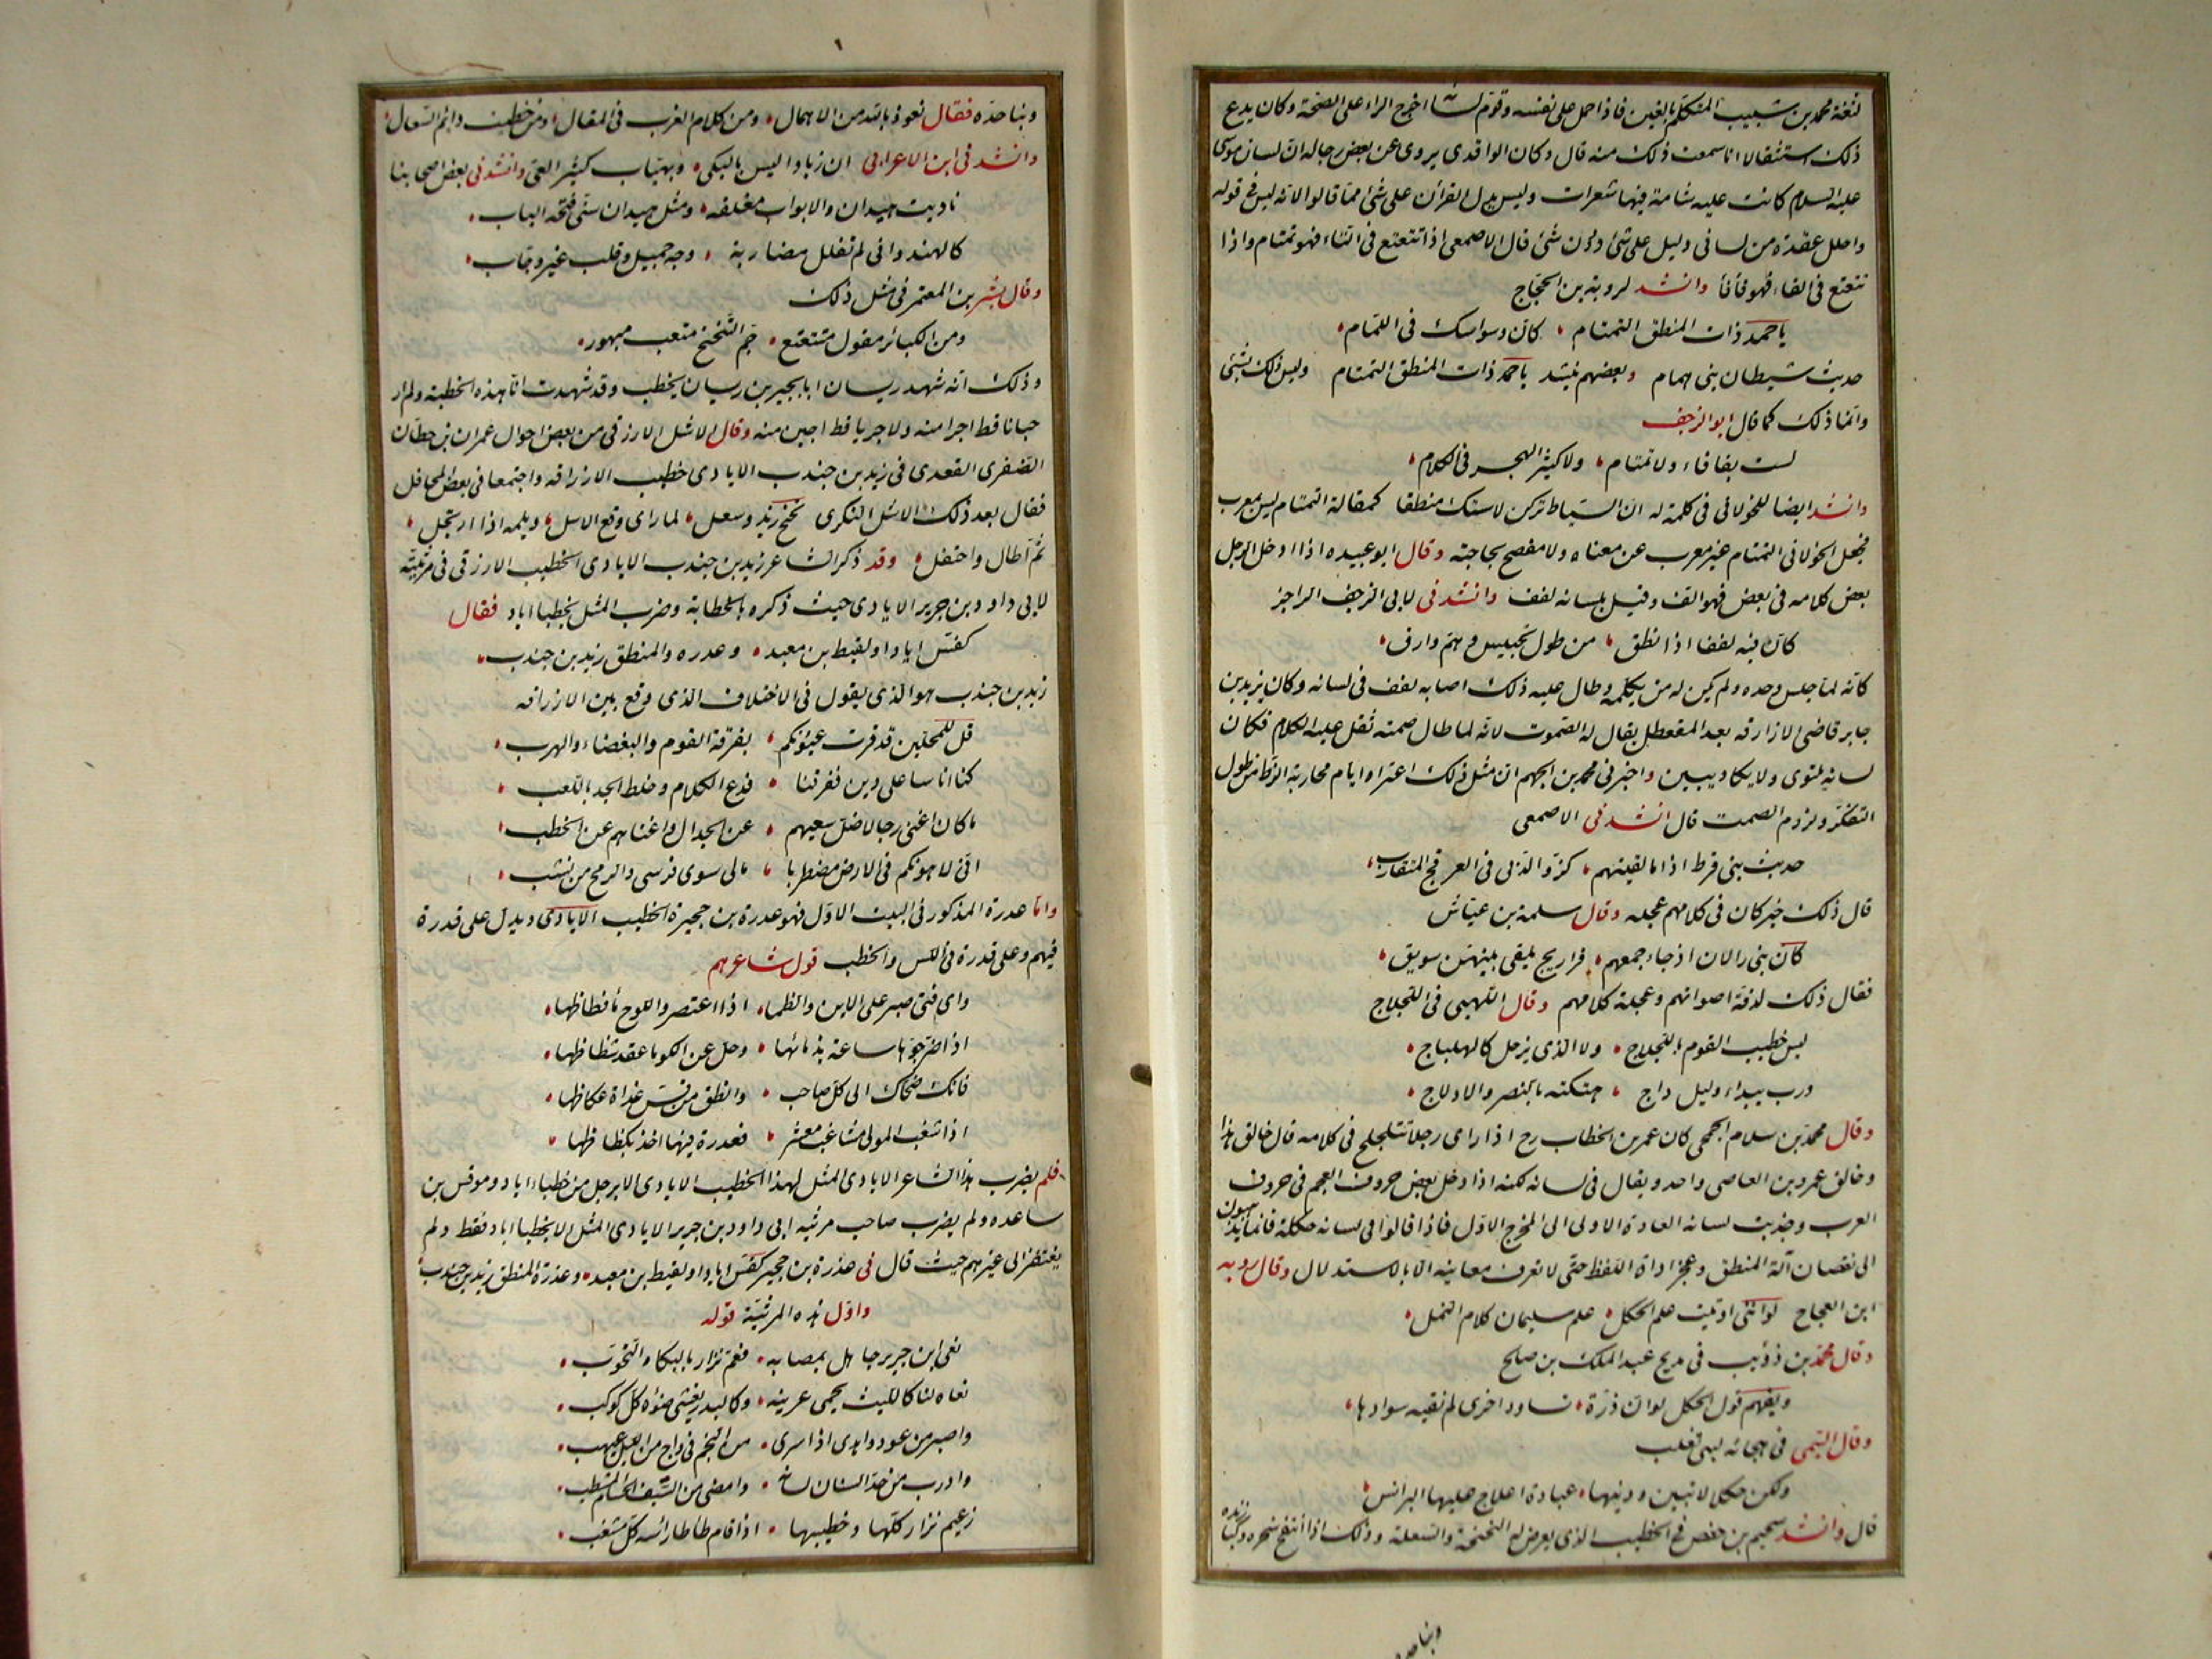 لثغة محمد بن شبيب المتكلم بالغين فاذا حمل على نفسه وقوم لسانه اخرج الراء على الصحة وكان يدع
ذلك استثقالا انا سمعت ذلك منه قال وكان الواقدى يروى عن بعض رجاله ان لسان موسى
عليه السلام كانت عليه شامة فيها شعرات وليس يدل القرآن على شئ مما قالوا لانه ليس فى قوله
واحلل عقدة من لسانى دليل على شئ دون شئ قال الاصمعى اذا تتعتع فى التاء فهو تمتام واذا
تتعتع فى الفاء فهو فأفأ وانشد لروبة بن العجاج
يا حمد ذات المنطق التمتام كان وسواسك فى اللمام
حديث شيطان بنى همام وبعضهم ينشد يا حمد ذات المنطق التمتام وليس ذلك بشئ
وانما ذلك كما قال ابو الزحف
لست بفافاء ولا تمتام ولا كثير الهجر فى الكلام
وانشد ايضا للخولانى فى كلمة له ان السياط تركن لاستك منطقا كمقالة التمتام ليس بمعرب
فجعل الخولانى التمتام غير معرب عن معناه ولا مفصح بحاجته وقال ابو عبيده اذا ادخل الرجل
بعض كلامه فى بعض فهو الف وقيل بلسانه لفف وانشدنى لابى الزحف الراجز
كان فيه لففا اذا نطق من طول تحبيس وهم وارق
كانه لما جلس وحده ولم يكن له من يكلمه وطال عليه ذلك اصابه لفف فى لسانه وكان يزيد بن
جابر قاضى الازارقه بعد المقعطل يقال له الصموت لانه لما طال صمته ثقل عليه الكلام فكان
لسانه يلتوى ولا يكاد يبين واخبرنى محمد بن الجهم ان مثل ذلك اعتراه ايام محاربة الزط من طول
التفكر ولزوم الصمت قال انشدنى الاصمعى
حديث بنى قرط اذا ما لقيتهم كنزو الدبى فى العرفج المتقارب
قال ذلك خبر كان فى كلامهم عجله وقال سلمة بن عياش
كان بنى رالان اذ جاء جمعهم فراريج يلقى بينهن سويق
فقال ذلك لدقة اصواتهم وعجلة كلامهم وقال اللهبى فى اللجلاج
ليس خطيب القوم باللجلاج ولا الذى يزحل كالهلباج
ورب بيداء وليل داج هتكته بالنص والادلاج
وقال محمد بن سلام الجمحى كان عمر بن الخطاب رح اذا راى رجلا يتلجلج فى كلامه قال خالق هذا
وخالق عمرو بن العاصى واحد ويقال فى لسانه لكنه اذا دخل بعض حروف العجم فى حروف
العرب وجذبت لسانه العادة الاولى الى المخرج الاول فاذا قالوا فى لسانه حكلة فانما يذهبون
الى نقصان آلة المنطق وعجز اداة اللفظ حتى لا تعرف معانيه الا بالاستدلال وقال روبه
ابن العجاج لو اننى اوتيت علم الحكل علم سليمان كلام النمل
وقال محمد بن ذؤيب فى مديح عبد الملك بن صلح
ويفهم قول الحكل لو ان ذرة تساود اخرى لم تفته سوادها
وقال التيمى فى هجائه لبنى تغلب
ولكن حكلا لا تبين ودينها عبادة اعلاج عليها البرانس
قال وانشد سحيم بن حفص فى الخطيب الذى يعرض له النحنحة والسعلة وذلك اذا انتفخ سحره وكبا زنده
ونبا حده
ونبا حده فقال نعوذ بالله من الاهمال ومن كلام الغرب فى المقال ومن خطيب دائم السعال
وانشدنى ابن الاعرابى ان زيادا ليس بالبكى ولا بهياب كثير العى وانشدنى بعض اصحابنا
ناديت هيدان والابواب مغلقه ومثل هيدان سنى فتحه الباب
كالهندوانى لم تفلل مضاربه وجه جميل وقلب غير وجاب
وقال بشر بن المعتمر فى مثل ذلك
ومن الكبائر مقول متتعتع جم التنحنح متعب مبهور
وذلك انه شهد ريسان ابا بجير بن ريسان يخطب وقد شهدت انا هذه الخطبة ولم ار
جبانا قط اجرا منه ولا جريا قط اجبن منه وقال الاشل الازرقى من بعض اخوال عمران بن حطان
الصفرى القعدى فى زيد بن جندب الايادى خطيب الازارقه واجتمعا فى بعض المحافل
فقال بعد ذلك الاشل البكرى نحنح زيد وسعل لما راى وقع الاسل ويلمه اذا ارتجل
ثم اطال واحتفل وقد ذكر الشاعر زيد بن جندب الايادى الخطيب الازرقى فى مرثيته
لابى داود بن جرير الايادى حيث ذكره بالخطابة وضرب المثل بخطبا اياد فقال
كقس اياد او لقيط بن معبد وعدره والمنطق زيد بن جندب
زيد بن جندب هو الذى يقول فى الاختلاف الذى وقع بين الازارقه
قل للمحلين قد قرت عيونكم بفرقة القوم والبغضاء والهرب
كنا اناسا على دين ففرقنا قدع الكلام وخلط الجد باللعب
ما كان اغنى رجالا ضل سعيهم عن الجدال واغناهم عن الخطب
انى لاهونكم فى الارض مضطربا مالى سوى فرسى والرمح من نشب
واما عدرة المذكور فى البيت الاول فهو عدرة بن حجيرة الخطيب الايادى ويدل على قدره
فيهم وعلى قدره فى اللسن والخطب قول شاعرهم
واى فتى صبر على الاين والظما اذا اعتصروا للوح ما فظاظها
اذا ضرجوها ساعة بدمائها وحل عن الكوما عقد شظاظها
فانك ضحاك الى كل صاحب وانطق من قس غداة عكاظها
اذا شغب المولى مشاغب معشر فعدرة فيها اخذ بكظاظها
فلم يضرب هذا الشاعر الايادى المثل لهذا الخطيب الايادى الا برجل من خطباء اياد وهو قس بن
ساعده ولم يضرب صاحب مرثيه ابى داود بن جرير الايادى المثل الا بخطبا اياد فقط ولم
يفتقر الى غيرهم حيث قال فى عذرة بن حجير كقس اياد او لقيط بن معبد وعذرة المنطق زيد بن جندب
واول هذه المرثية قوله
نعى ابن جرير جاهل بمصابه فعم نزار بالبكاء والتحوب
نعاه لنا كالليث يحمى عرينه وكالبدر يغشى ضوءه كل كوكب
واصبر من عود واهدى اذا سرى من النجم فى داج من الليل غيهب
واذرب من حد السنان لسانه وامضى من السيف الحسام المشطب
زعيم نزار كلها وخطيبها اذا قام طاطا راسه كل مشغب